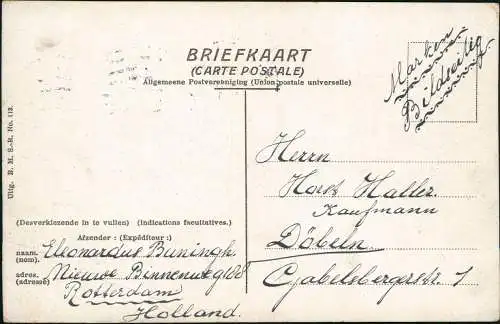 BRIEFKAART
(CARTE POSTALE)
Algemeene Postvereeniging (Union postale universelle)
Marken
Bildseitig
Uitg. B. M. S.-R. No. 113.
Herrn
Horst Haller.
Kaufmann
Döbeln.
Gabelsbergerstr. 1
(Desverkiezende in te vullen) (indications facultatives.)
Afzender : (Expéditeur :)
naam. Eleonardus Buningh.
(nom).
adres. Nieuwe Binnenweg
(adresse)
Rotterdam
Holland.